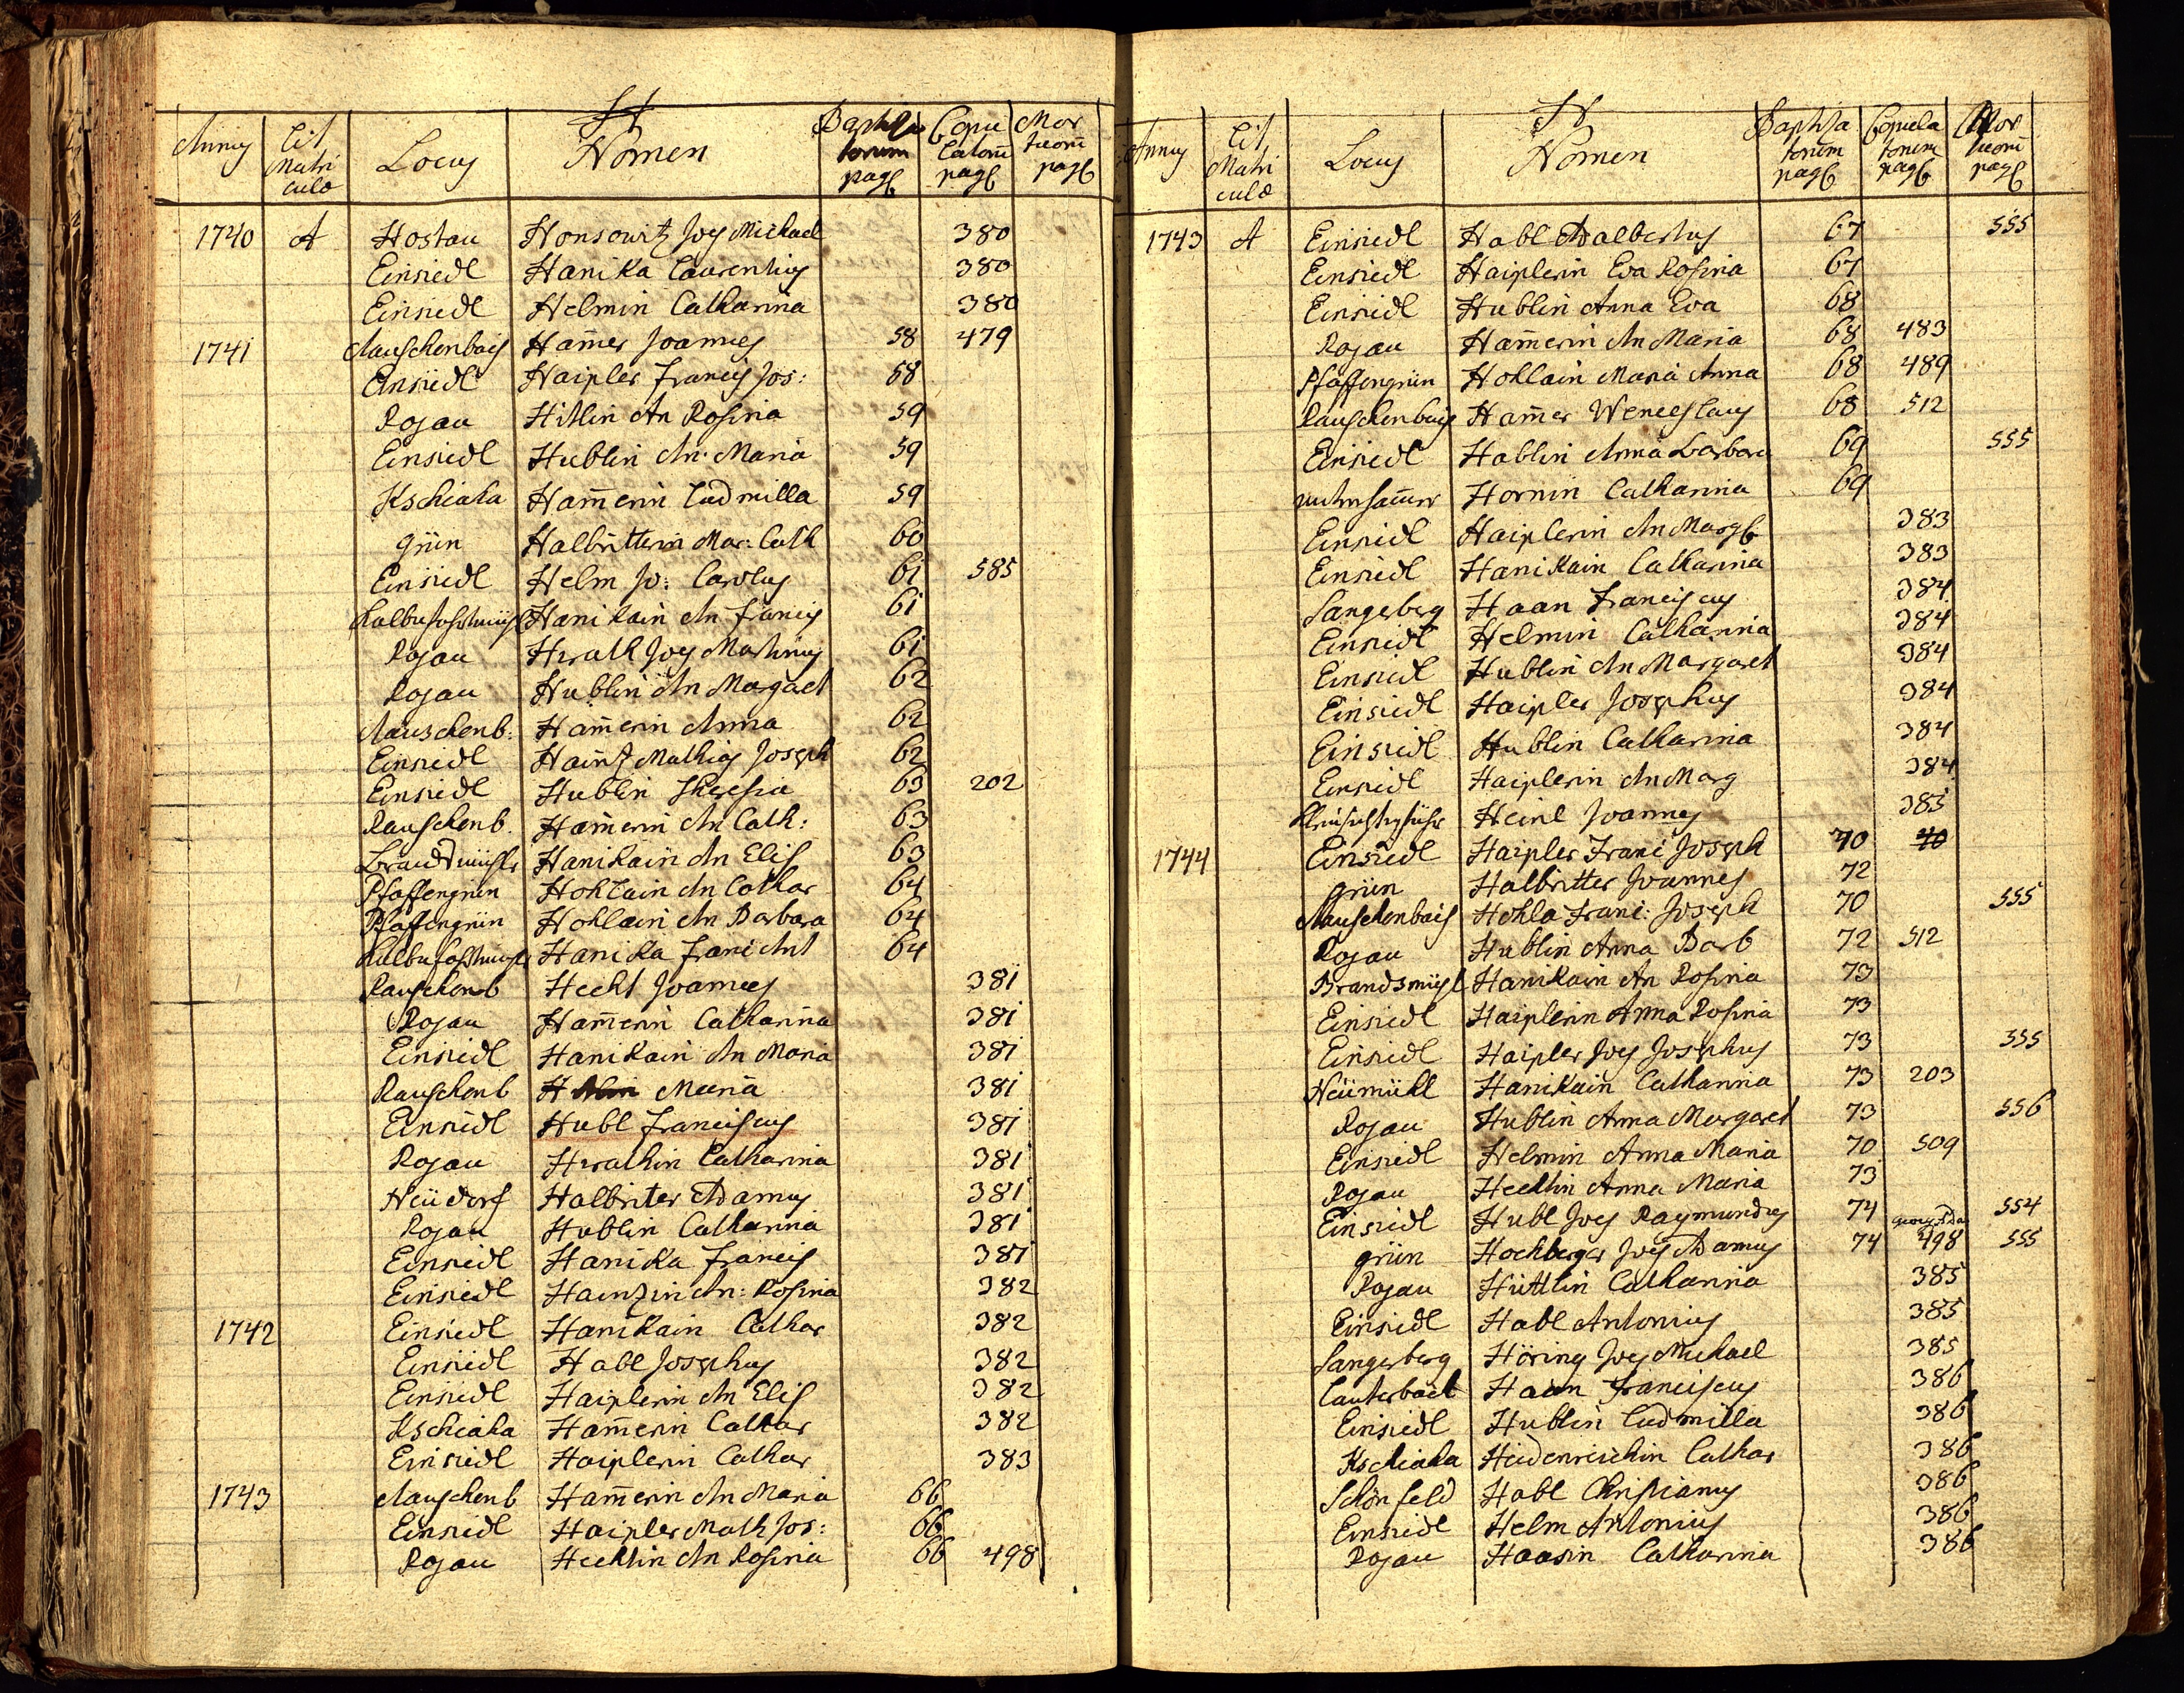 H
Annus Lit Matriculae Locus Nomen Baptisatorum pag Copulatorum pag Mortuorum pag
1740 A Hostau Honsowitz Joes Michael 380
Einsiedl Hanika Laurentius 380
Einsiedl Helmin Catharina 380
1741 Rauschenbach Ham̄er Joannes 58 479
Einsiedl Haipler Francis Jos: 58
Rojau Hitlin An Rosina 59
Einsiedl Hublin An: Maria 59
Kschiaha Ham̄erin Ludmilla 59
grün Halbritterin Mar: Cath 60
Einsiedl Helm Jo: Carolus 61 585
Hanikain An Francis 61
Rojau Hrath Joes Martinus 61
Rojau Hublin An Margaet 62
Rauschenb: Ham̄erin Anna 62
Einsiedl Haintz Mathias Joseph 62
Einsiedl Hublin Theresia 63 202
Rauschenb. Ham̄erin An Cath: 63
Hanikain An Elis 63
Pfaffengrün Hohlain An Cathar 64
Pfaffengrün Hohlain An Barbara 64
Hanika Franc Ant 64
Rauschenb Hecht Joannes 381
Rojau Ham̄erin Catharina 381
Einsiedl Hanikain An Maria 381
Rauschenb H Maria 381
Einsiedl Hubl Franciscus 381
Rojau Hrathin Catharina 381
Neüdorf Halbriter Adamus 381
Rojau Hublin Catharina 381
Einsiedl Hanika Francis 381
Einsiedl Haintzin An: Rosina 382
1742 Einsiedl Hanikain Cathar 382
Einsiedl Habl Josephus 382
Einsiedl Haiplerin An Elis 382
Kschiaha Ham̄erin Cathar 382
Einsiedl Haiplerin Cathar 383
1743 Rauschenb Ham̄erin An Maria 66
Einsiedl Haipler Math Jos: 66
Rojau Hecktin An Rosina 66 498
H
Annus Lit Matriculae Locus Nomen Baptisatorum pag Copulatorum pag Mortuorum pag
1743 A Einsiedl Habl Adalbertus 67 555
Einsiedl Haiplerin Eva Rosina 67
Einsiedl Hublin Anna Eva 68
Rojau Ham̄erin An Maria 68 483
Pfaffengrün Hohlain Maria Anna 68 489
Rauschenbach Ham̄er Wenceslaus 68 512
Einsiedl Hablin Anna Barbara 69 555
Hornin Catharina 69
Einsiedl Haiplerin An Marg 383
Einsiedl Hanikain Catharina 383
Sangerberg Haan Franciscus 384
Einsiedl Helmin Catharina 384
Einsiedl Hublin An Margaret 384
Einsiedl Haipler Josephus 384
Einsiedl Hublin Catharina 384
Einsiedl Haiplerin An Marg 384
Heinl Joannes 385
1744 Einsiedl Haipler Franc Joseph 70 70
grün Halbritter Joannes 72
Rauschenbach Hohla Franc: Joseph 70 555
Rojau Hublin Anna Barb 72 512
Brandsmühl Hanikain An Rosina 73
Einsiedl Haiplerin Anna Rosina 73
Einsiedl Haipler Joes Josephus 73 555
Neümühl Hanikain Catharina 73 203
Rojau Hublin Anna Margaret 73 556
Einsiedl Helmin Anna Maria 70 509
Rojau Hecktin Anna Maria 73
Einsiedl Hubl Joes Raymundus 74 554
grün Hochberger Joes Adamus 74 498 555
Rojau Hüttlin Catharina 385
Einsiedl Habl Antonius 385
Sangerberg Höring Joes Michael 385
Lauterbach Haan Franciscus 386
Einsiedl Hublin Ludmilla 386
Kschiaha Heidenreichin Cathar 386
Schönfeld Habl Christianus 386
Einsiedl Helm Antonius 386
Rojau Haasin Catharina 386